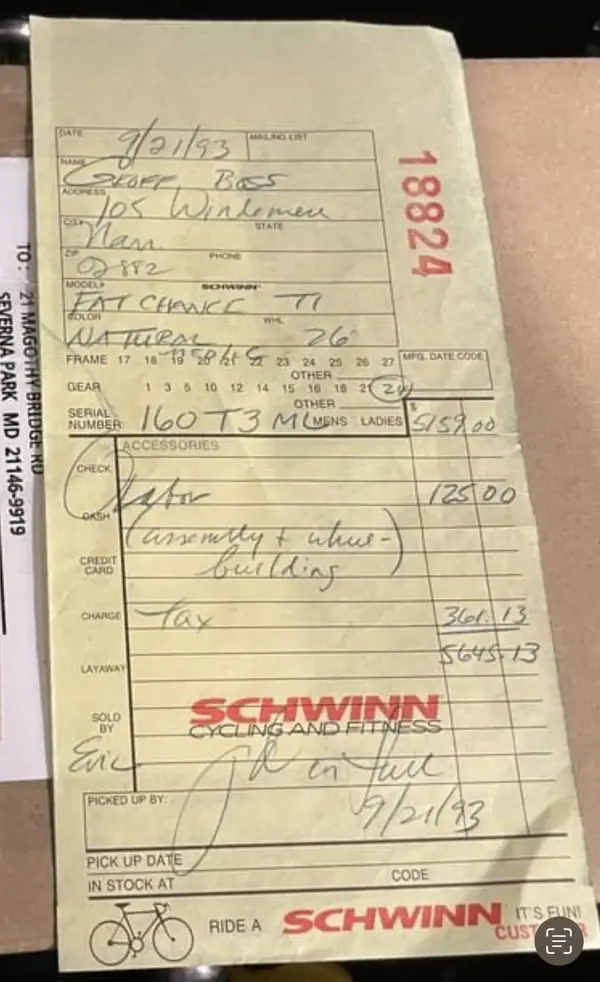 DATE 9/21/93 MAILING LIST
18824
NAME GEOFF BOSS
ADDRESS 105 Windemere
CITY Narr. STATE
ZIP 02882 PHONE
MODEL# SCHWINN
FAT CHANCE TI
COLOR WHL
NATURAL 26"
FRAME 17 18 19 20 21 22 23 24 25 26 27 MFG. DATE CODE
OTHER
GEAR 1 3 5 10 12 14 15 16 18 21 24
OTHER
SERIAL NUMBER: 160 T3 ML MENS LADIES $ 5159.00
ACCESSORIES
CHECK
labor 125.00
CASH
(assembly + wheel-
building)
CREDIT CARD
CHARGE Tax 361.13
5645.13
LAYAWAY
SCHWINN
CYCLING AND FITNESS
SOLD BY
Eric
Pd in full
9/21/93
PICKED UP BY:
PICK UP DATE
IN STOCK AT CODE
RIDE A SCHWINN IT'S FUN!
TO:
21 MAGOTHY BRIDGE RD
SEVERNA PARK MD 21146-9919